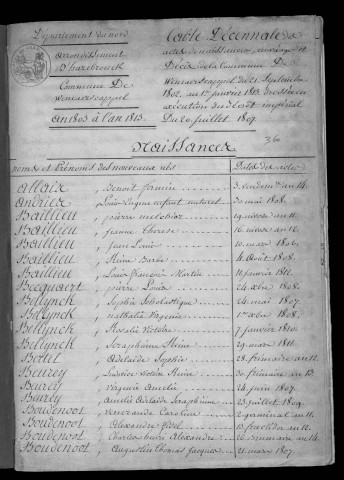 Département du nord
arrondissement
D'hazebrouck
Commune De
Wemaerscappel
an 1803 à l'an 1813.
Table Décennale des
actes de naissances, mariages et
Décès de la Commune De
Wemaerscappel du 21 Septembre
1802, au 1er janvier 1813 Dressée en
exécution du Décret impérial
Du 20 juillet 1807.
Naissances
noms et Prénoms des nouveaux nés Dates des actes
allaix, Benoit firmin 3. vendem.re an 14.
andries, Louis Eugene enfant naturel 30 mai 1808.
Baillieu, pierre melchior
Baillieu, jeanne therese
Baillieu, jean Louis 10 mars 1806.
Baillieu, Reine Barbe 4 août 1808.
Baillieu, Louis françois Martin 11 janvier 1811.
Becquaert, pierre Louis 24 xbre 1808.
Bellynck, Sophie Scholastique 24 mai 1807.
Bellynck, nathalie Virginie 1er xbre 1808.
Bellynck, Rosalie Victoire 7 janvier 1810.
Bellynck, Seraphine Reine 29 mars 1811.
Bertet, adelaide Sophie 28 frimaire an 12.
Beurey, Ludovice Victoire Reine 30 frimaire an 13.
Beurey, Virginie Amelie 24 juin 1807.
Beurey, Amelie Adelaide Seraphine 23 juillet 1809.
Boudenoot, venerande Caroline 2 germinal an 11.
Boudenoot, Alexandre fidel 13 fructidor an 12.
Boudenoot, Charles henri Alexandre 26 brumaire an 14.
Boudenoot, Augustin thomas Jacques 21 mars 1807.